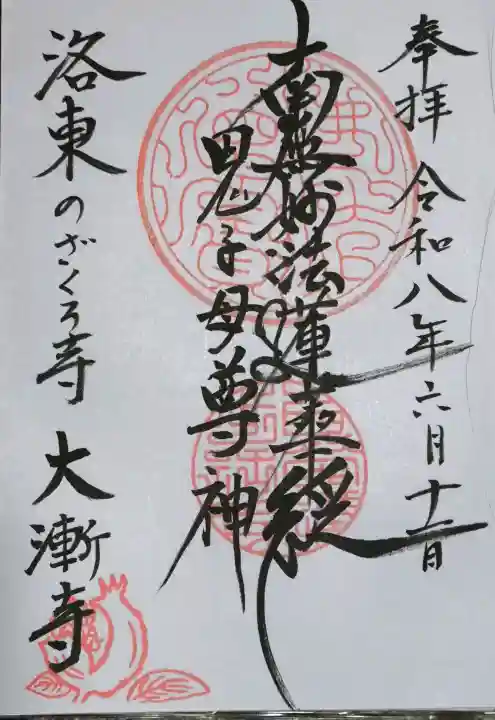 奉拝 令和八年六月十二日
南無妙法蓮華経
鬼子母尊神
洛東のざくろ寺 大漸寺